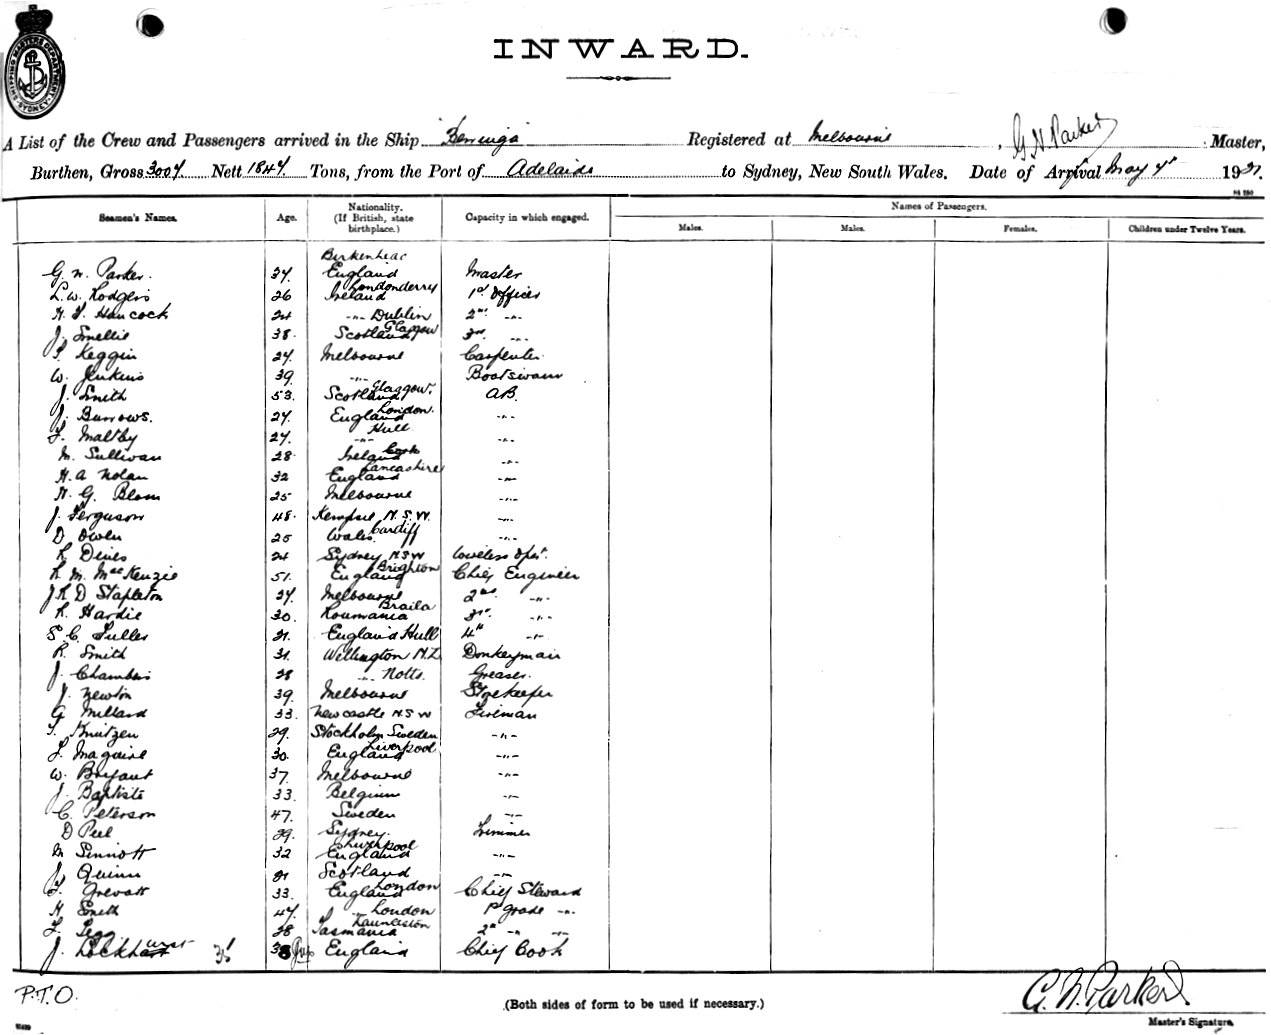 SHIPPING MASTERS DEPARTMENT SYDNEY
INWARD.
A List of the Crew and Passengers arrived in the Ship "Berringa" Registered at Melbourne, G. N. Parker Master,
Burthen, Gross 3004 Nett 1844 Tons, from the Port of Adelaide to Sydney, New South Wales. Date of Arrival May 4th 1921.
Names of Passengers.
Seamen's Names. Age. Nationality. (If British, state birthplace.) Capacity in which engaged. Males. Males. Females. Children under Twelve Years.
G. N. Parker. 34 Birkenhead England Master
L. W. Rodgers 26 Londonderry Ireland 1st Officer
H. Hancock 24 -"- Dublin 2nd -"-
J. Smellie 38 Scotland Glasgow 3rd -"-
Keggin 24 Melbourne Carpenter
W. Jenkins 39 -"- Boatswain
J. Smith 53 Scotland Glasgow. AB.
J. Burrows. 24 England London. -"-
F. Maltby 24 -"- Hull -"-
M. Sullivan 28 Ireland Cork -"-
H. A Nolan 32 England Lancashire -"-
H. G. Blom 25 Melbourne -"-
J. Ferguson 48 Kempsie N.S.W. -"-
D Owen 25 Wales. Cardiff -"-
R. Dines 24 Sydney N.S.W Wireless Opt.
R. M. MacKenzie 51. England Brighton Chief Engineer
J R D Stapleton 24 Melbourne 2nd -"-
R. Hardie 30. Roumania Braila 3rd -"-
S. C. Fuller 21. England Hull 4th -"-
R. Smith 31. Wellington N.Z. Donkeyman
J. Chambers 28 -"- Notts. Greaser.
J. Newton 39 Melbourne Storekeeper
G. Millard 33. Newcastle N.S.W Fireman
Knutzen 29. Stockholm Sweden -"-
F. Maguire 30. England Liverpool -"-
W. Bryant 37 Melbourne -"-
J. Baptiste 33 Belgium -"-
C. Peterson 47. Sweden -"-
D Peel 29. Sydney. Trimmer
M Sinnott 32 England Liverpool -"-
J. Quinn 21 Scotland -"-
F. Grevatt 33. England London Chief Steward
H. Smith 47 -"- London 1st grade -"-
F. Legg 28 Tasmania Launceston 2nd -"- -"-
J. Lockhurst 35 England Chief Cook
P.T.O.
(Both sides of form to be used if necessary.)
G. N. Parker
Master's Signature.